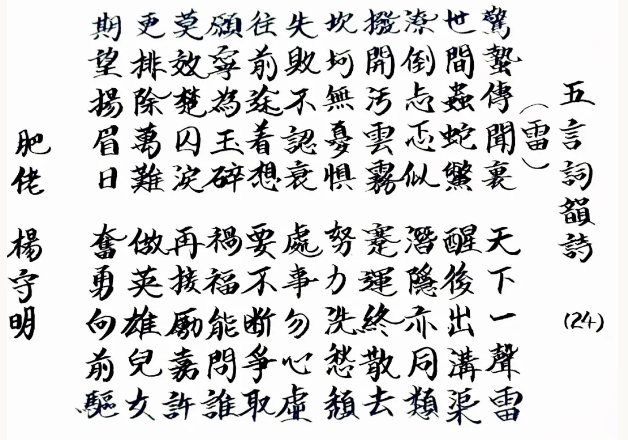 五言詞韻詩 (24)
(雷)
驚蟄傳聞裏 天下一聲雷
世間蟲蛇鱉 醒後出溝渠
潦倒忐忑似 潛隱亦同類
撥開污雲霧 蹇運終散去
坎坷無憂懼 努力洗愁頹
失敗不認衰 處事勿心虛
往前途着想 要不斷爭取
願寧為玉碎 禍福能問誰
莫效楚囚淚 再接勵嘉許
更排除萬難 做英雄兒女
期望揚眉日 奮勇向前驅
肥佬 楊守明